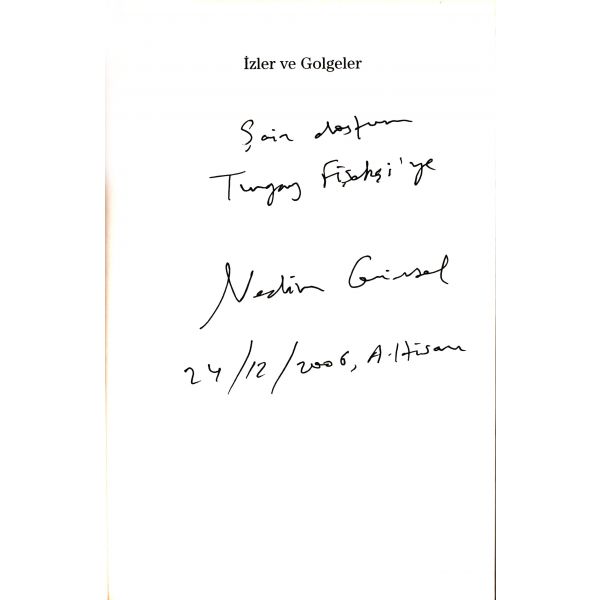 İzler ve Golgeler
Şair dostum
Turgay Fişekçi'ye
Nedim Gürsel
24/12/2006, A.Hisarı